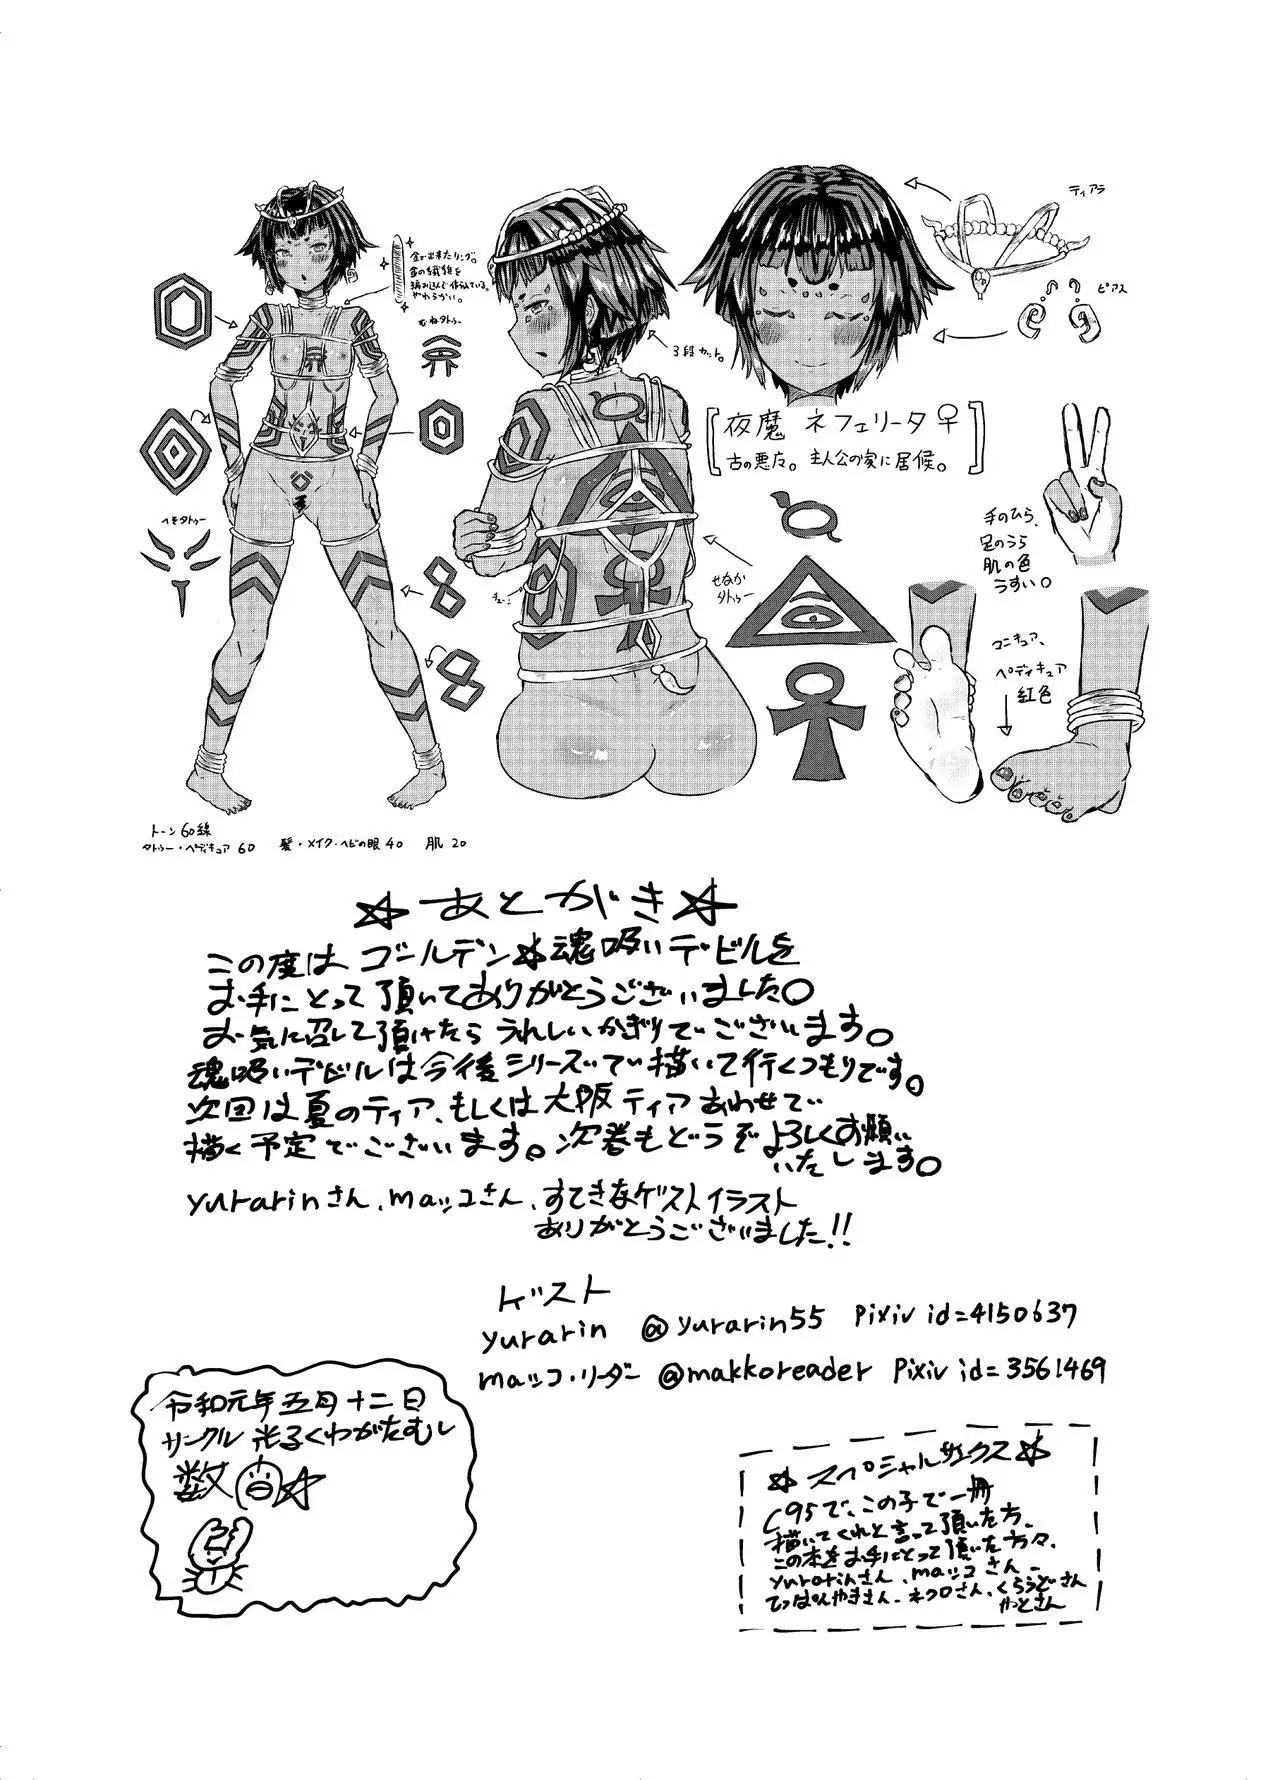 ティアラ
金で出来たリング。
金の繊維を
編み込んで作られている。
やわらかい。
ピアス
むねタトゥー
3段カット。
[夜魔 ネフェリータ♀
古の悪魔。主人公の家に居候。]
手のひら、
足のうら
肌の色
うすい。
へそタトゥー
せなか
タトゥー
マニキュア、
ペディキュア
紅色
トーン60線
タトゥー・ペディキュア 60 髪・メイク・ヘビの眼 40 肌 20
☆あとがき☆
この度は ゴールデン☆魂吸いデビルを
お手にとって頂いてありがとうございました。
お気に召して頂けたら うれしいかぎりでございます。
魂吸いデビルは今後シリーズで描いて行くつもりです。
次回は夏のティア、もしくは大阪ティアあわせで
描く予定でございます。次巻もどうぞよろしくお願い
いたします。
yurarinさん、maッコさん、すてきなゲストイラスト
ありがとうございました!!
ゲスト
yurarin @yurarin55 Pixiv id=4150637
maッコ・リーダー @makkoreader Pixiv id=3561469
令和元年五月十二日
サークル 光子くわがたむし
数
☆スペシャルサンクス☆
C95で、この子で一冊
描いてくれと言って頂いた方、
この本をお手にとって頂いた方々、
yurarinさん、maッコさん、
てっぱんやきさん、ネクロさん、くらうどさん
やとさん